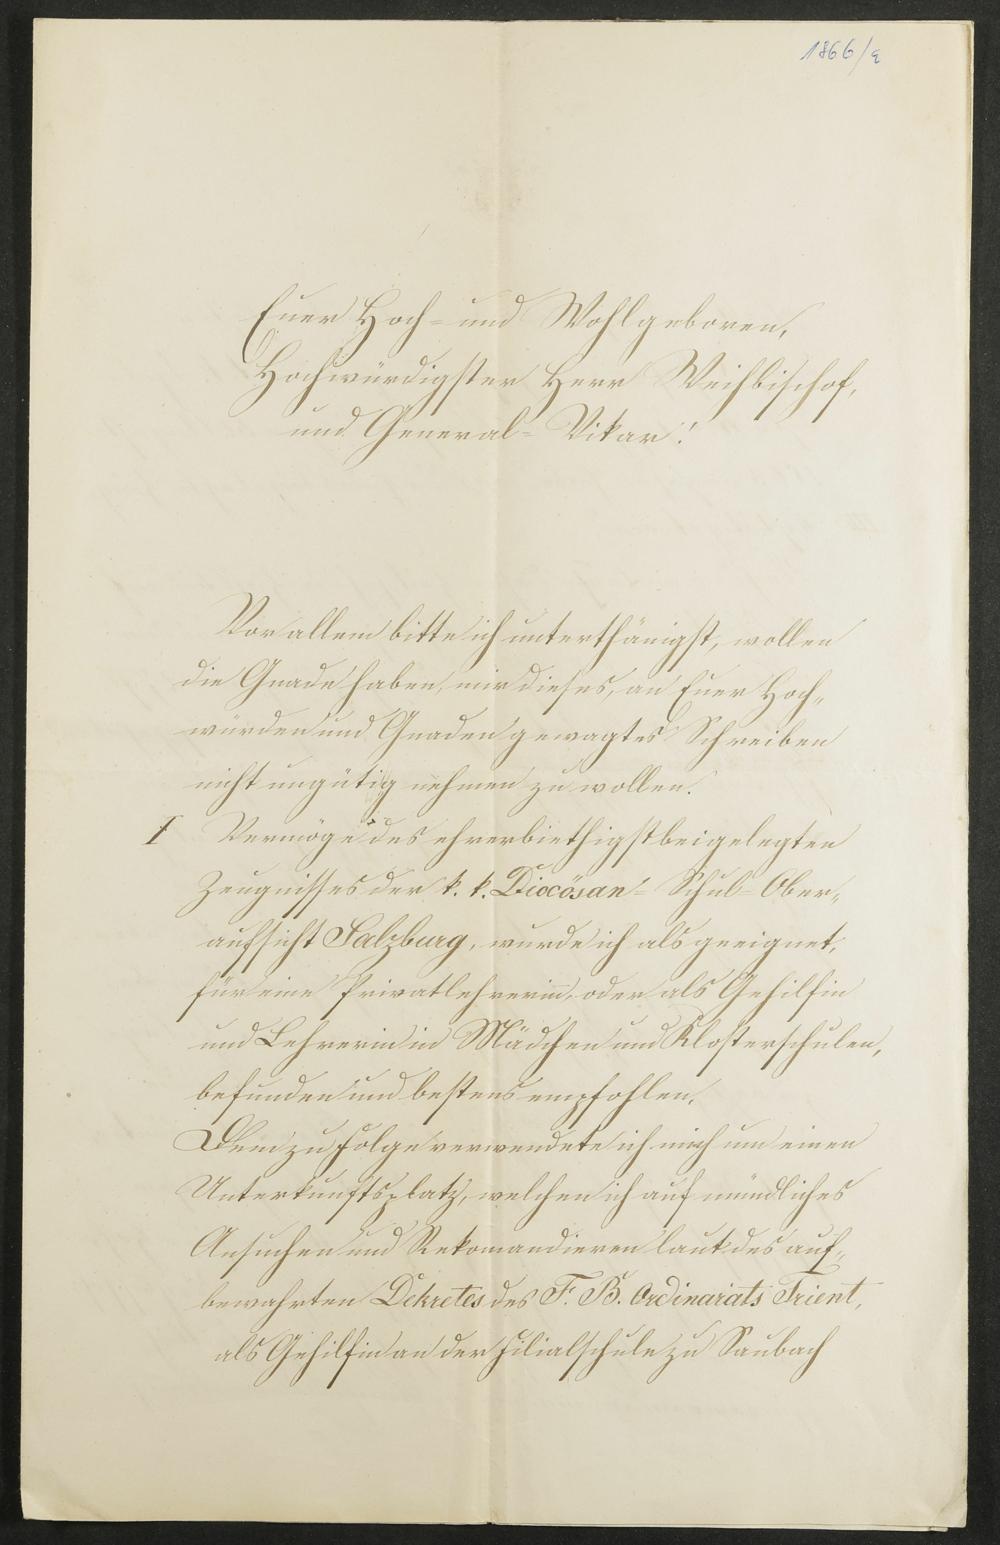 1866/e
Euer Hoch- und Wohlgeboren,
Hochwürdigster Herr Weihbischof,
und General-Vikar!
Vor allem bitte ich unterthänigst, wollen
die Gnade haben, mir dieses, an Euer Hoch„
würden und Gnaden gewagtes Schreiben
nicht ungütig nehmen zu wollen.
I Vermöge des ehrerbiethigst beigelegten
Zeugnisses der k. k. Diocösan- Schul-Ober„
aufsicht Salzburg, wurde ich als geeignet,
für eine Privatlehrerin, oder als Gehilfin
und Lehrerin in Mädchen und Klosterschulen,
befunden und bestens empfohlen.
Dem zu Folge verwendete ich mich um einen
Unterkunftsplatz, welchen ich auf mündliches
Ansuchen und Rekomandieren laut des auf„
bewahrten Dekretes des F. B. Ordinariats Trient,
als Gehilfin an der Filialschule zu Saubach